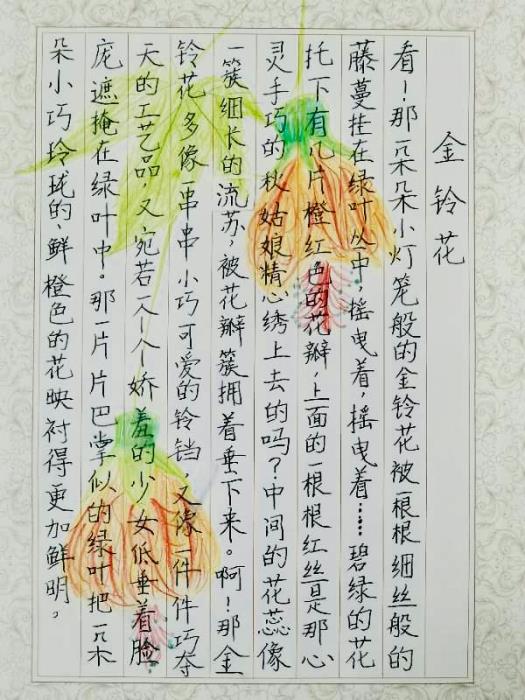 金铃花
看！那一朵朵小灯笼般的金铃花被一根根细丝般的
藤蔓挂在绿叶丛中，摇曳着，摇曳着……碧绿的花
托下有几片橙红色的花瓣，上面的一根根红丝是那心
灵手巧的秋姑娘精心绣上去的吗？中间的花蕊像
一簇细长的流苏，被花瓣簇拥着垂下来。啊！那金
铃花多像一串串小巧可爱的铃铛，又像一件件巧夺
天的工艺品，又宛若一个个娇羞的少女低垂着脸
庞遮掩在绿叶中。那一片片巴掌似的绿叶把一朵
朵小巧玲珑的、鲜橙色的花映衬得更加鲜明。